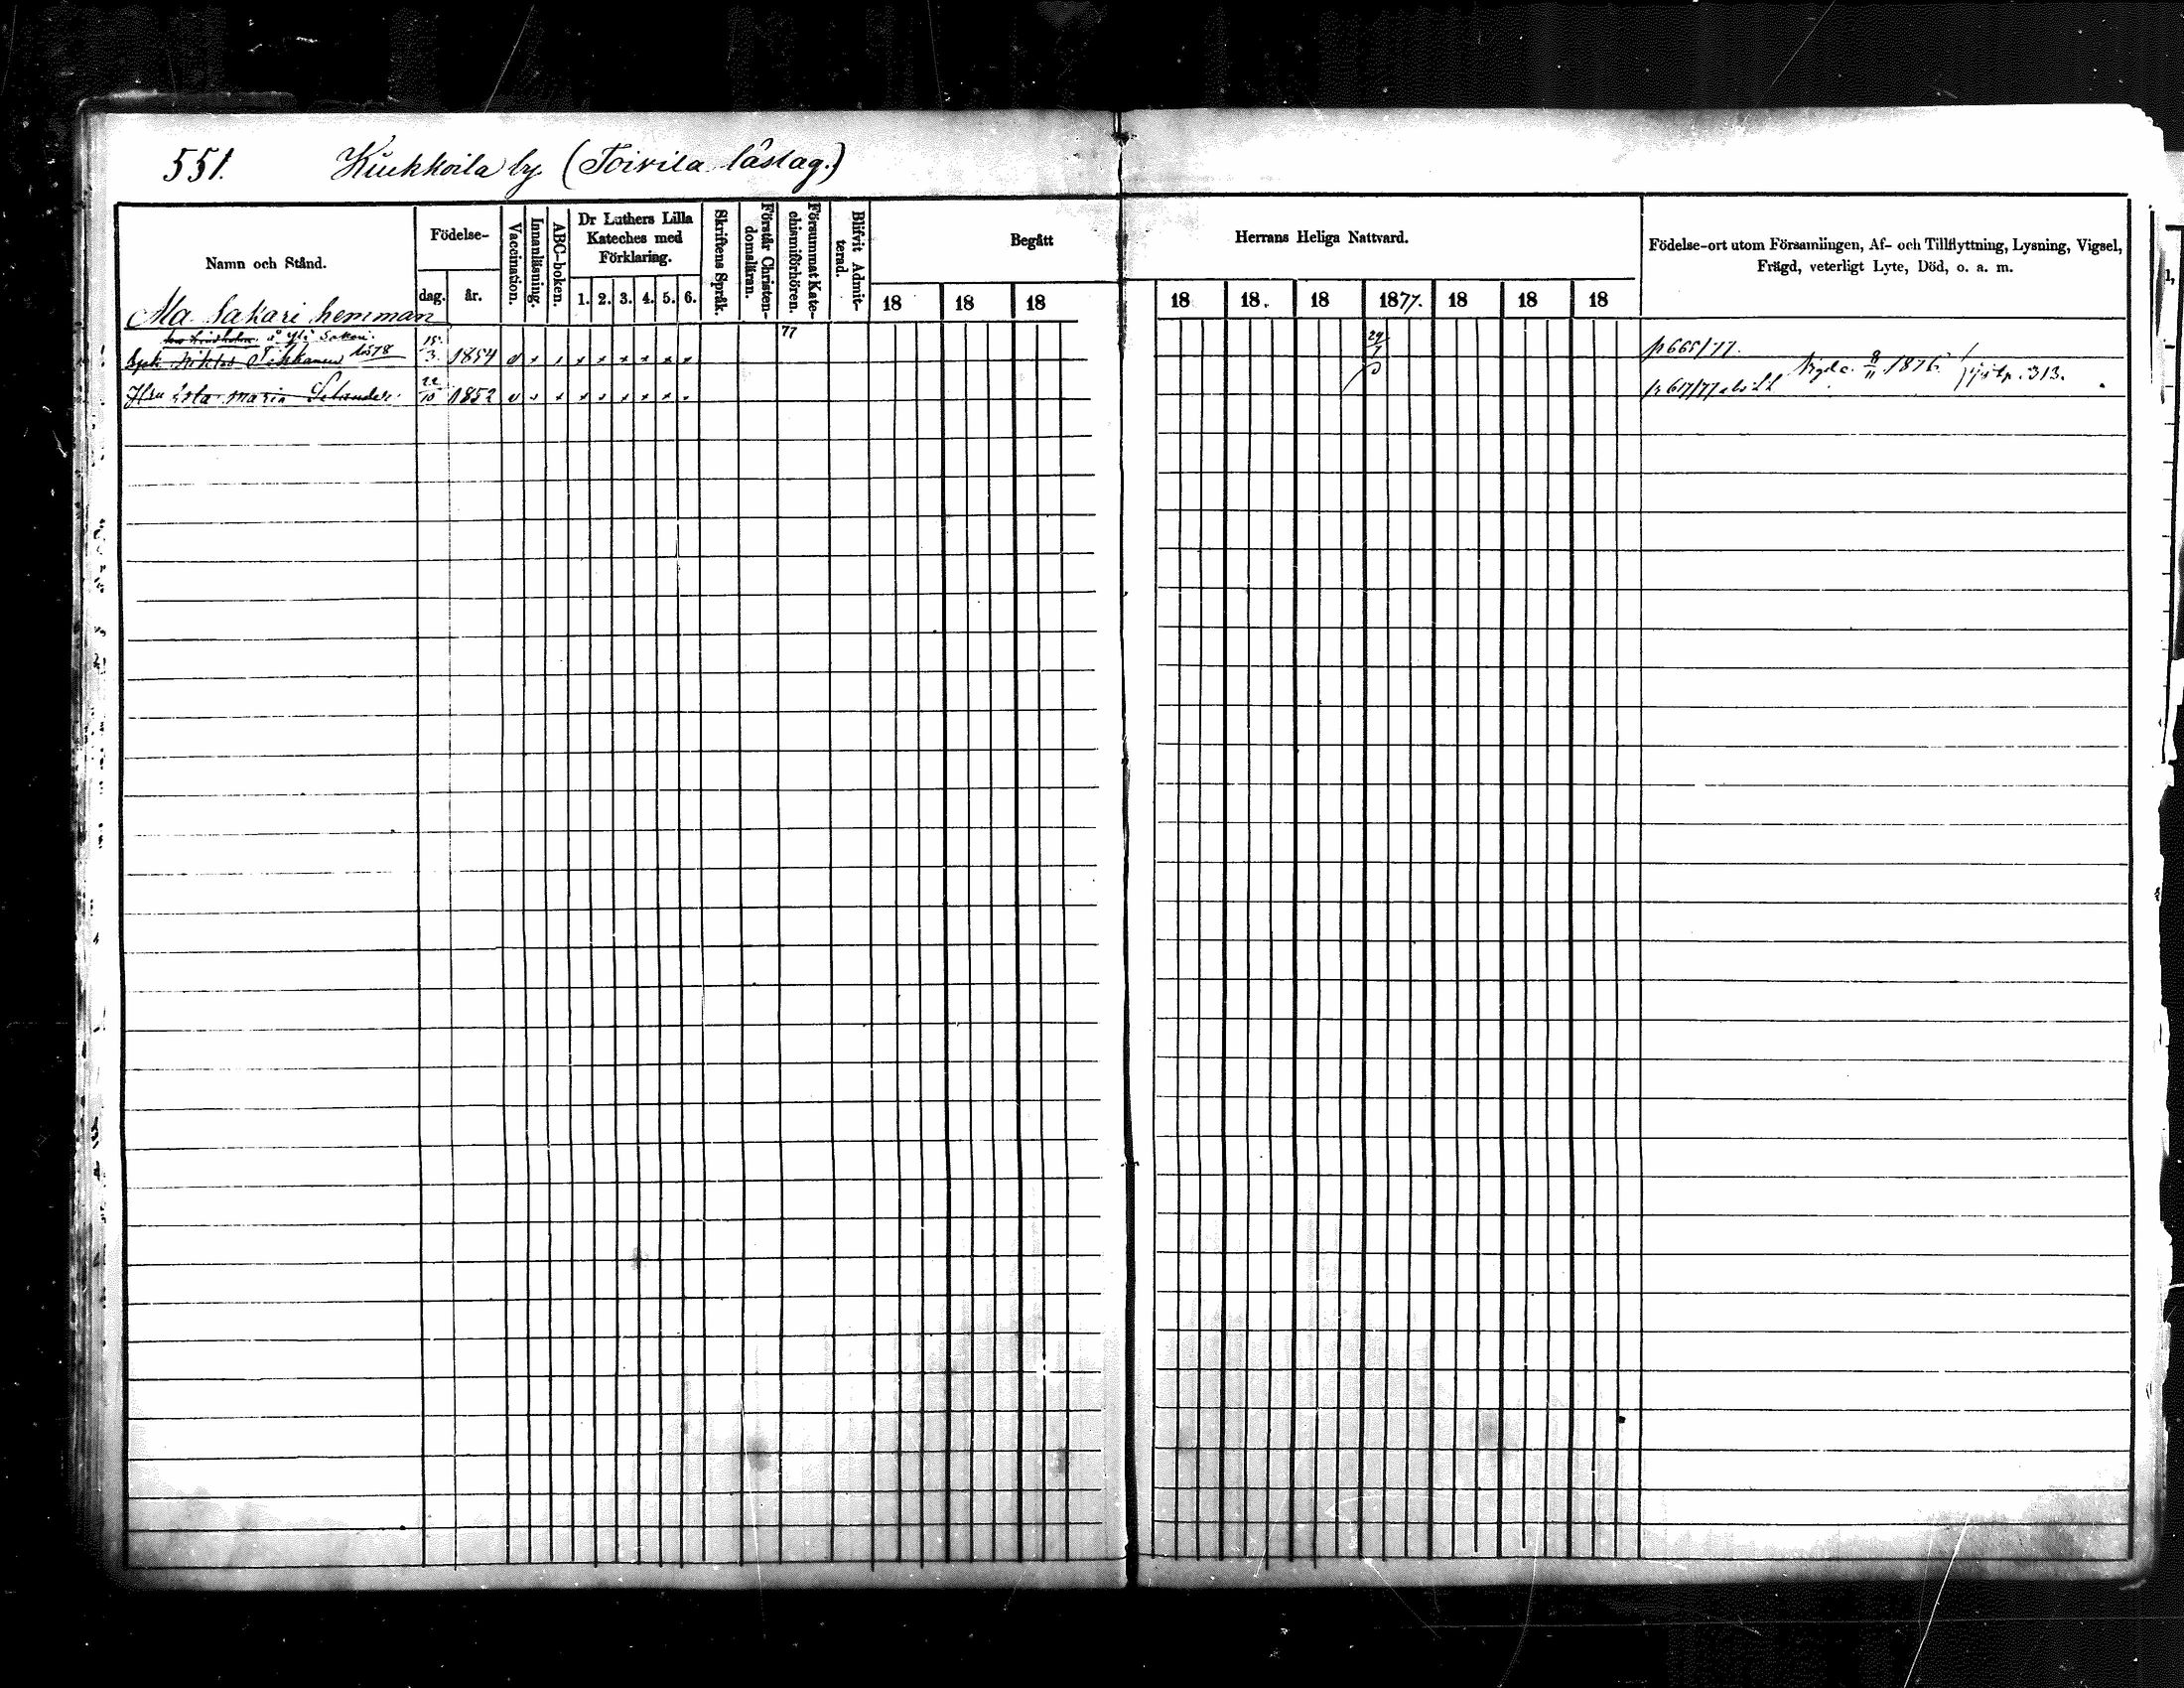 551. Kuukkoila by. (Toivila låslag.)
Namn och Stånd.
Födelse-
dag. år.
Vaccination.
Innanläsning.
ABC-boken.
Dr Luthers Lilla
Kateches med
Förklaring.
1. 2. 3. 4. 5. 6.
Skriftens Språk.
Förstår Christen-
domsläran.
Försummat Kate-
chismiförhören.
Blifvit Admit-
terad.
Begått Herrans Heliga Nattvard.
18 18 18 18 18. 18 1877. 18 18 18
Födelse-ort utom Församlingen, Af- och Tillflyttning, Lysning, Vigsel,
Frägd, veterligt Lyte, Död, o. a. m.
Ala Sakari hemman
å Yli Sakari. 15. 77 29/7 p 665/77.
Tikkanen 1578 3. 1854 v x x x x x x x x
Hu Lovisa Maria Selander 22/10 1852 v x x x x x x x x p 617/77 Vigde 8/11 1876. 313.